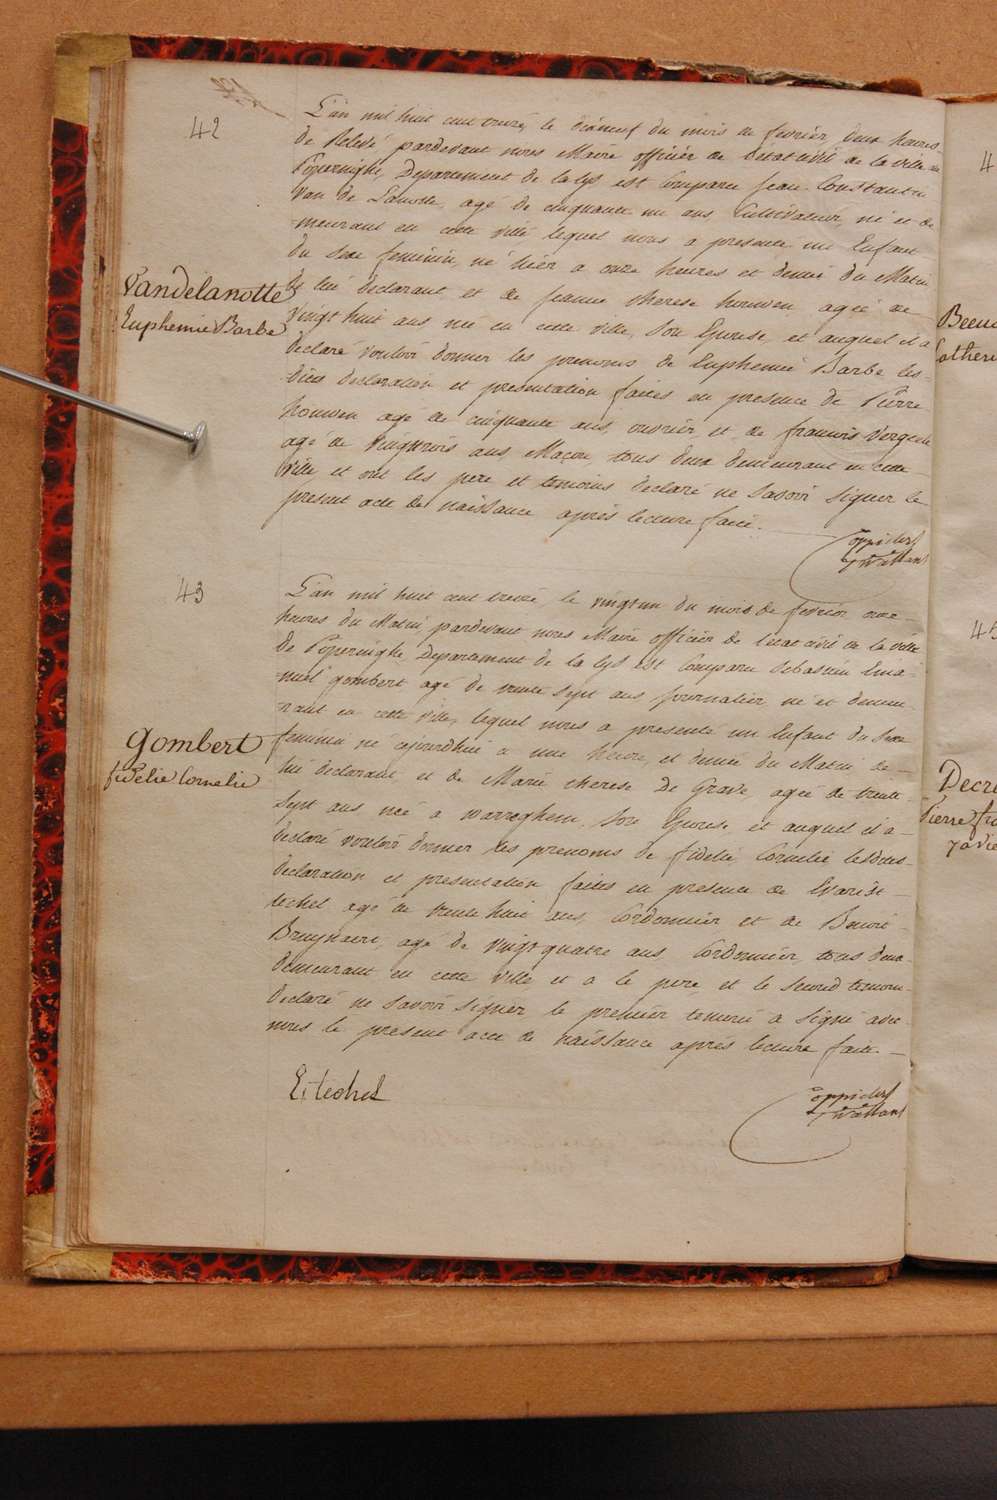 42
Vandelanotte
Euphemie Barbe
L'an mil huit cent treize, le dixneuf du mois de fevrier deux heures
de Relevé pardevant nous Maire officier de l'état civil de la ville de
Poperinghe, Departement de la lys est Comparu jean Constantin
Van de Lanotte, agé de cinquante un ans Cultivateur, né et de
meurant en cette ville lequel nous a presenté un Enfant
du sexe feminin, né hier a onze heures et demie du Matin
de lui declarant et de jeanne therese houwen agée de
vingt huit ans née en cette ville, son Epouse, et auquel il a
declaré vouloir donner les prenoms de Euphemie Barbe les-
dites declaration et presentation faites en presence de Pierre
houwen agé de cinquante ans, ouvrier et de francois Vergeule
agé de vingt trois ans, Maçon tous deux demeurant en cette
ville, et ont les pere et temoins declaré ne savoir signer le
present acte de naissance après lecture faite.
43
Gombert
fidelie Cornelie
L'an mil huit cent treize, le vingt un du mois de fevrier onze
heures du Matin pardevant nous Maire officier de l'état civil de la ville
de Poperinghe Departement de la lys est Comparu Sebastien Ema-
nuel gombert agé de trente sept ans journalier né et demeu-
rant en cette ville, lequel nous a presenté un Enfant du sexe
feminin né ajourdhui a une heure, et demie du Matin de
lui declarant, et de Marie therese De Grave, agée de trente
sept ans née a warreghem, son Epouse et auquel il a
declaré vouloir donner les prenoms de fidelie Cornelie lesdites
declaration et presentation faites en presence de Evariste
techel agé de trente huit ans, Cordonnier et de Benoit
Bruynaere, agé de vingt quatre ans Cordonnier, tous deux
demeurant en cette ville et a le pere, et le second temoin
declaré ne savoir signer le premier temoin a signé avec
nous le present acte de naissance après lecture faite.
E. techel
Decre
Pierre